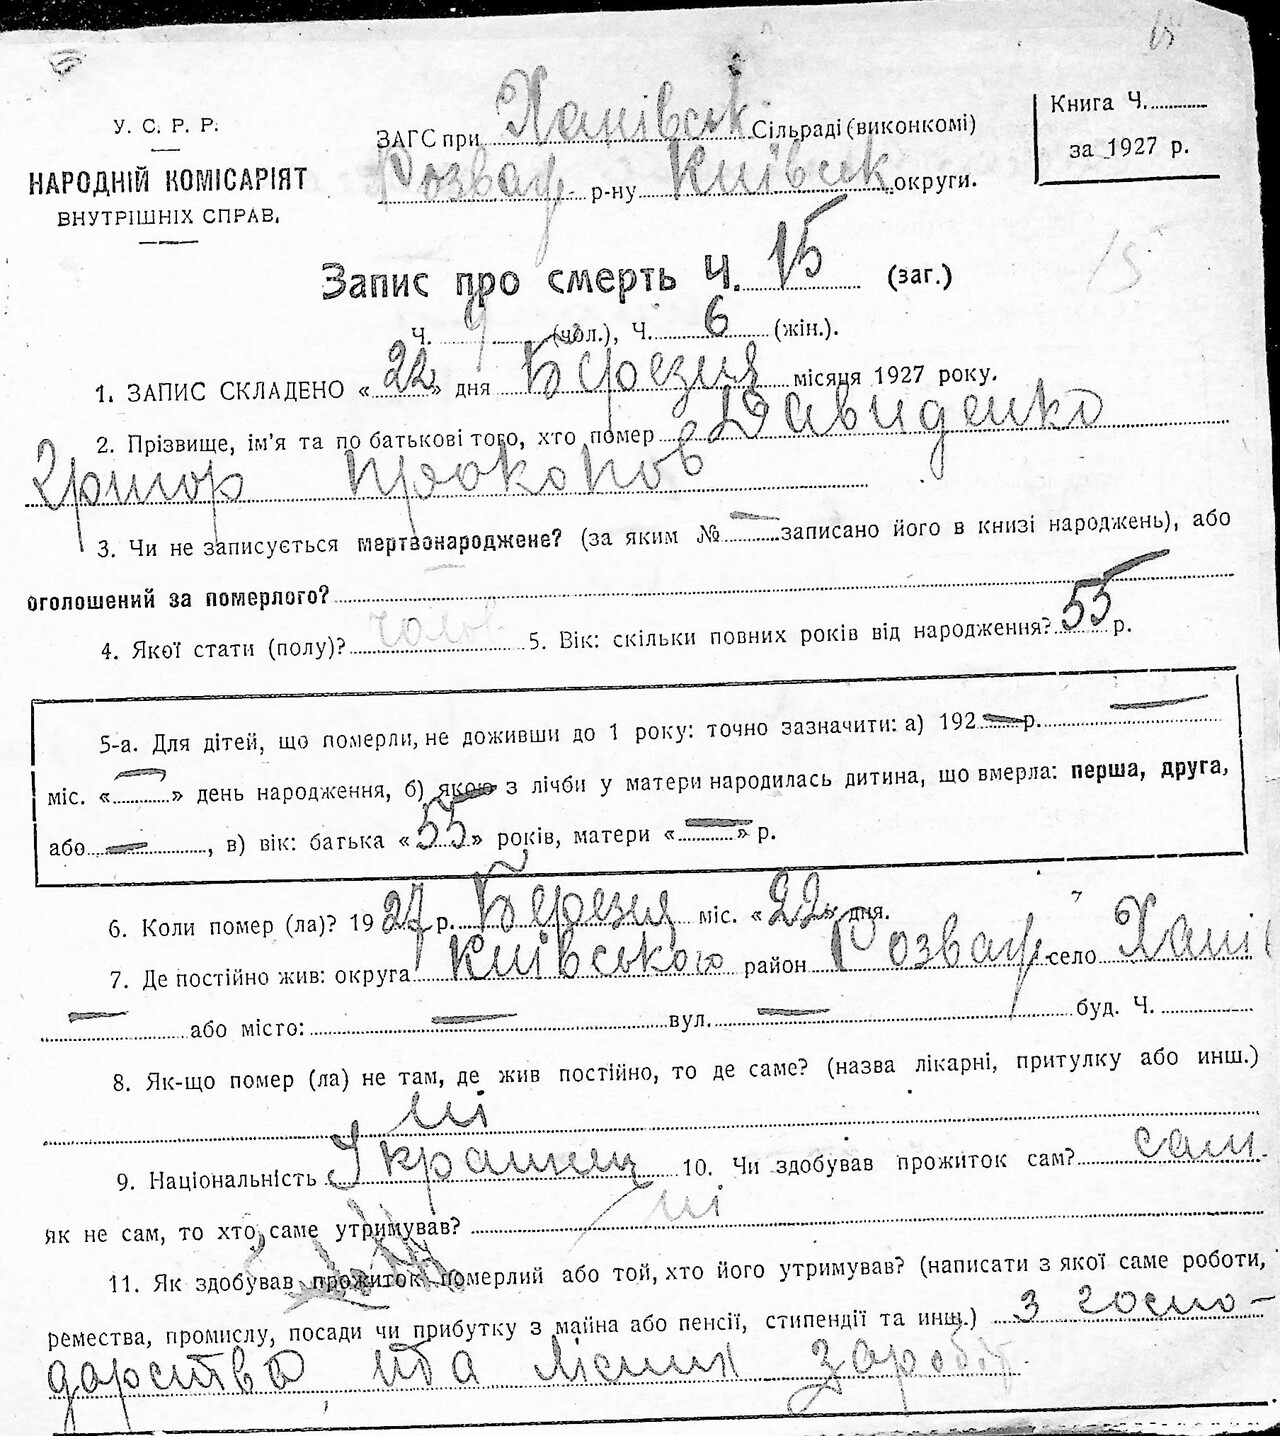 15
У. С. Р. Р.
НАРОДНІЙ КОМІСАРІЯТ
ВНУТРІШНІХ СПРАВ.
ЗАГС при Ханівськ Сільраді (виконкомі)
Розваж р-ну Київськ округи.
Книга Ч.
за 1927 р.
15
Запис про смерть Ч. 15 (заг.)
Ч. 9 (чол.), Ч. 6 (жін.).
1. ЗАПИС СКЛАДЕНО « 22 » дня Березня місяця 1927 року.
2. Прізвище, ім'я та по батькові того, хто помер Давиденко
Григор Прокопов
3. Чи не записується мертвонароджене? (за яким № — записано його в книзі народжень), або
оголошений за померлого?
4. Якої стати (полу)? чолов 5. Вік: скільки повних років від народження? 55 р.
5-а. Для дітей, що померли, не доживши до 1 року: точно зазначити: а) 192 — р. —
міс. « — » день народження, б) якою з лічби у матери народилась дитина, що вмерла: перша, друга,
або — , в) вік: батька « 55 » років, матери « — » р.
6. Коли помер (ла)? 1927 р. Березня міс. « 22 » дня.
7. Де постійно жив: округа Київською район Розваж село Ханів
— або місто: — вул. — буд. Ч.
8. Як-що помер (ла) не там, де жив постійно, то де саме? (назва лікарні, притулку або инш.)
ні
9. Національність Українец 10. Чи здобував прожиток сам? сам
як не сам, то хто саме утримував? ні
11. Як здобував прожиток померлий або той, хто його утримував? (написати з якої саме роботи,
ремества, промислу, посади чи прибутку з майна або пенсії, стипендії та инш.) з госпо-
дарства та лісних заробіт